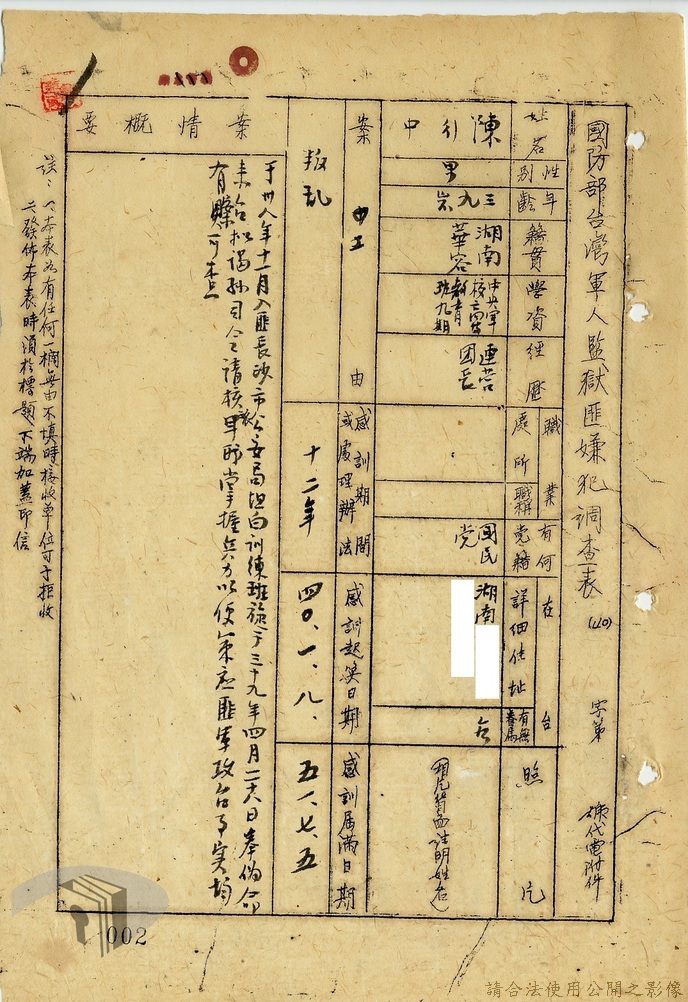 國防部台灣軍人監獄匪嫌犯調查表 (40) 字第 號代電附件
姓名
陳行中
性別
男
年齡
三九岁
籍貫
湖南
華容
學資
中央軍
校高等
教育
班九期
經歷
連营
团長
職業
處所
職稱
有何党籍
國民
党
在台
詳細住址
湖南
有無眷属
否
照片
(相片背面註明姓名)
案由
叛乱
中工
感訓期間
或處理辦法
十二年
感訓起算日期
四〇、一、八、
感訓屆滿日期
五一、七、五
案情概要
于卅八年十一月入匪長沙市公安局坦白訓練班旋于三十九年四月二六日奉伪命
来台拟谒孙司令
請核
掌握兵力以便策应匪軍攻台事实均
有
可
註:
本表如有任何一欄無由不填時接收單位可予拒收
二發佈本表時須於標題下端加蓋印信
002
請合法使用公開之影像